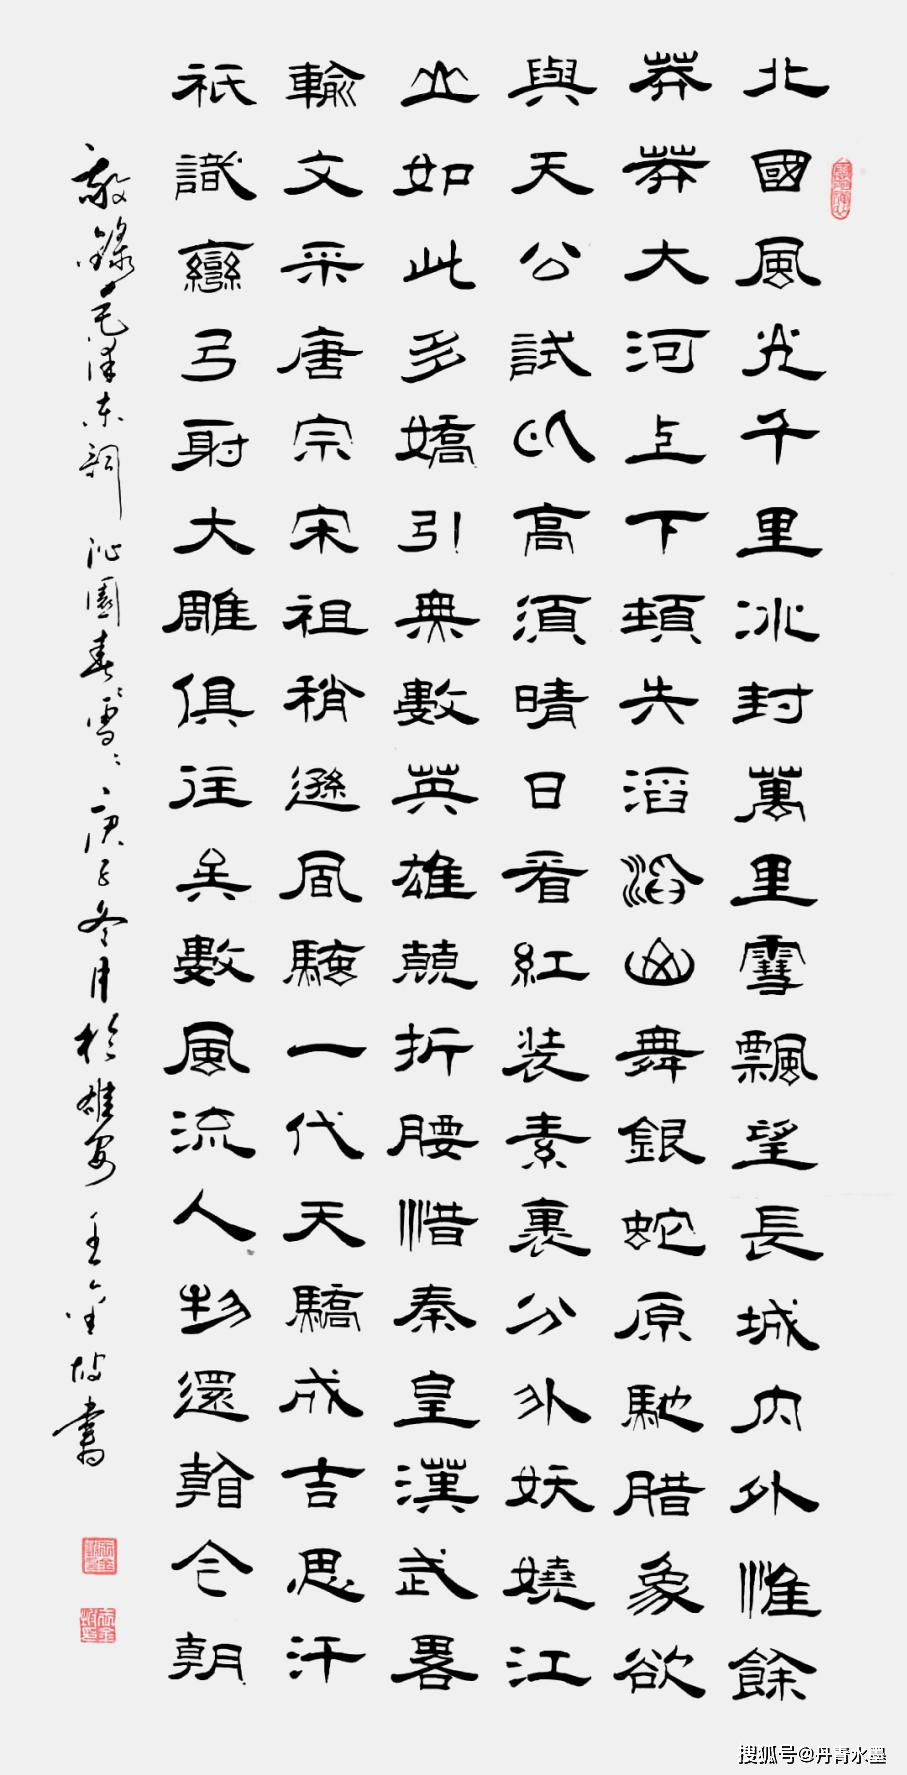 北國風光千里冰封萬里雪飄望長城内外惟餘
莽莽大河上下頓失滔滔山舞銀蛇原馳腊象欲
與天公試以高須晴日看紅装素裹分外妖嬈江
山如此多嬌引無數英雄競折腰惜秦皇漢武畧
輸文采唐宗宋祖稍遜風騷一代天驕成吉思汗
祇識彎弓射大雕俱往矣數風流人物還看今朝
敬錄毛泽东詞沁園春雪庚子冬月於雄安王金坡書
搜狐号@丹青水墨